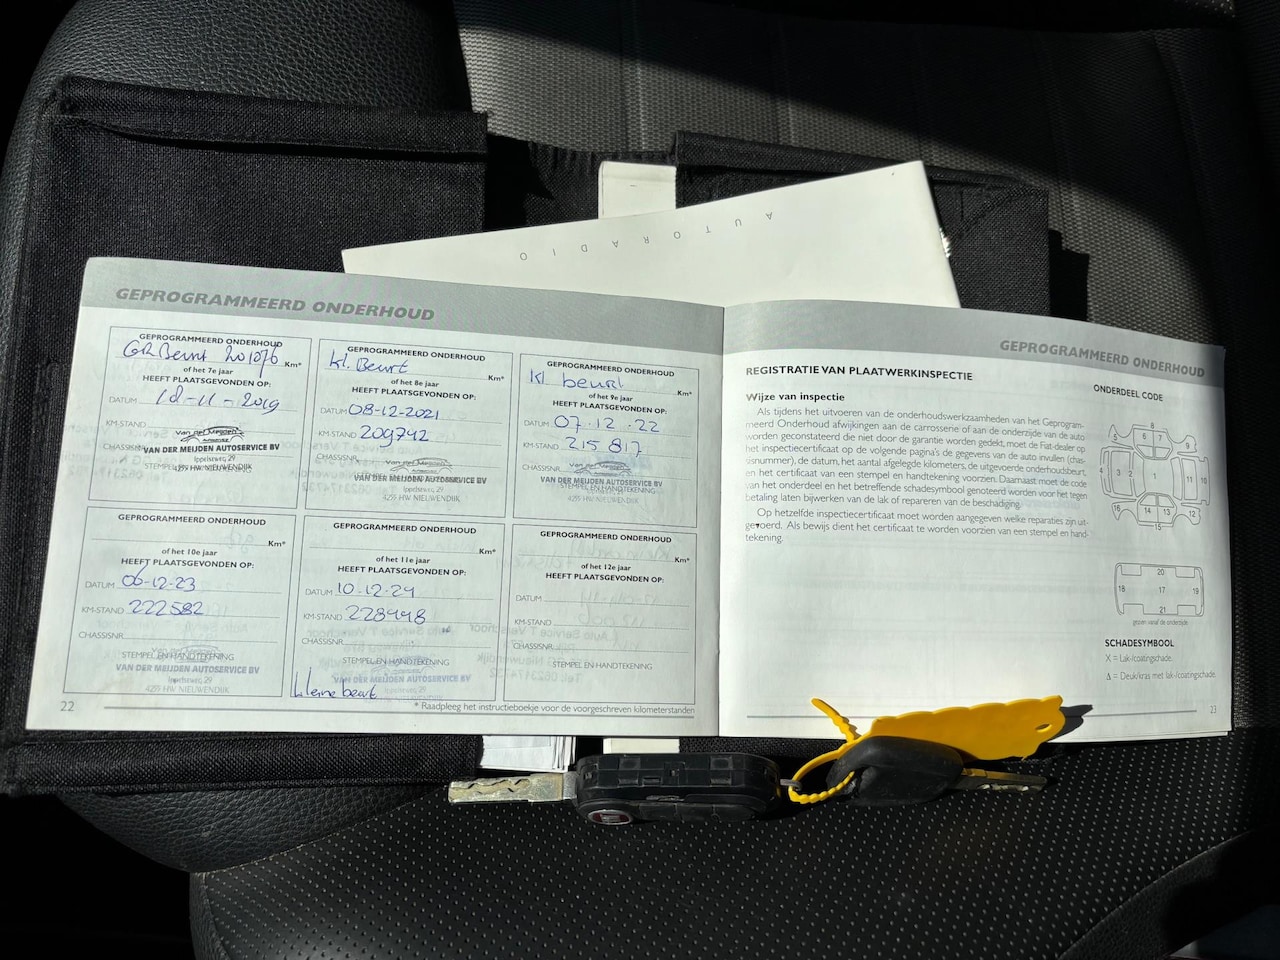 AUTORADIO
GEPROGRAMMEERD ONDERHOUD
GEPROGRAMMEERD ONDERHOUD
GR Beurt 201076 Km*
of het 7e jaar
HEEFT PLAATSGEVONDEN OP:
DATUM 18-11-2019
KM-STAND
CHASSISNR.
VAN DER MEIJDEN AUTOSERVICE BV
Ippelseweg, 29
4259 HW NIEUWENDIJK
GEPROGRAMMEERD ONDERHOUD
kl. Beurt Km*
of het 8e jaar
HEEFT PLAATSGEVONDEN OP:
DATUM 08-12-2021
KM-STAND 209742
CHASSISNR.
VAN DER MEIJDEN AUTOSERVICE BV
Ippelseweg, 29
4259 HW NIEUWENDIJK
GEPROGRAMMEERD ONDERHOUD
Kl beurt Km*
of het 9e jaar
HEEFT PLAATSGEVONDEN OP:
DATUM 07.12.22
KM-STAND 215817
CHASSISNR.
VAN DER MEIJDEN AUTOSERVICE BV
STEMPEL EN HANDTEKENING
4259 HW NIEUWENDIJK
GEPROGRAMMEERD ONDERHOUD
Km*
of het 10e jaar
HEEFT PLAATSGEVONDEN OP:
DATUM 06-12-23
KM-STAND 222582
CHASSISNR.
STEMPEL EN HANDTEKENING
VAN DER MEIJDEN AUTOSERVICE BV
Ippelseweg, 29
4259 HW NIEUWENDIJK
GEPROGRAMMEERD ONDERHOUD
Km*
of het 11e jaar
HEEFT PLAATSGEVONDEN OP:
DATUM 10-12-24
KM-STAND 228998
CHASSISNR.
STEMPEL EN HANDTEKENING
VAN DER MEIJDEN AUTOSERVICE BV
Ippelseweg, 29
4259 HW NIEUWENDIJK
kleine beurt
GEPROGRAMMEERD ONDERHOUD
Km*
of het 12e jaar
HEEFT PLAATSGEVONDEN OP:
DATUM
KM-STAND
CHASSISNR.
STEMPEL EN HANDTEKENING
22
* Raadpleeg het instructieboekje voor de voorgeschreven kilometerstanden
GEPROGRAMMEERD ONDERHOUD
REGISTRATIE VAN PLAATWERKINSPECTIE
Wijze van inspectie
Als tijdens het uitvoeren van de onderhoudswerkzaamheden van het Geprogram-
meerd Onderhoud afwijkingen aan de carrosserie of aan de onderzijde van de auto
worden geconstateerd die niet door de garantie worden gedekt, moet de Fiat-dealer op
het inspectiecertificaat op de volgende pagina's de gegevens van de auto invullen (chas-
sisnummer), de datum, het aantal afgelegde kilometers, de uitgevoerde onderhoudsbeurt
en het certificaat van een stempel en handtekening voorzien. Daarnaast moet de code
van het onderdeel en het betreffende schadesymbool genoteerd worden voor het tegen
betaling laten bijwerken van de lak of repareren van de beschadiging.
Op hetzelfde inspectiecertificaat moet worden aangegeven welke reparaties zijn uit-
gevoerd. Als bewijs dient het certificaat te worden voorzien van een stempel en hand-
tekening.
ONDERDEEL CODE
8
5 6 7 9
4 3 2 1 11 10
16 14 13 12
15
20
18 17 19
21
gezien vanaf de onderzijde
SCHADESYMBOOL
X = Lak-/coatingschade.
Δ = Deuk/kras met lak-/coatingschade.
23